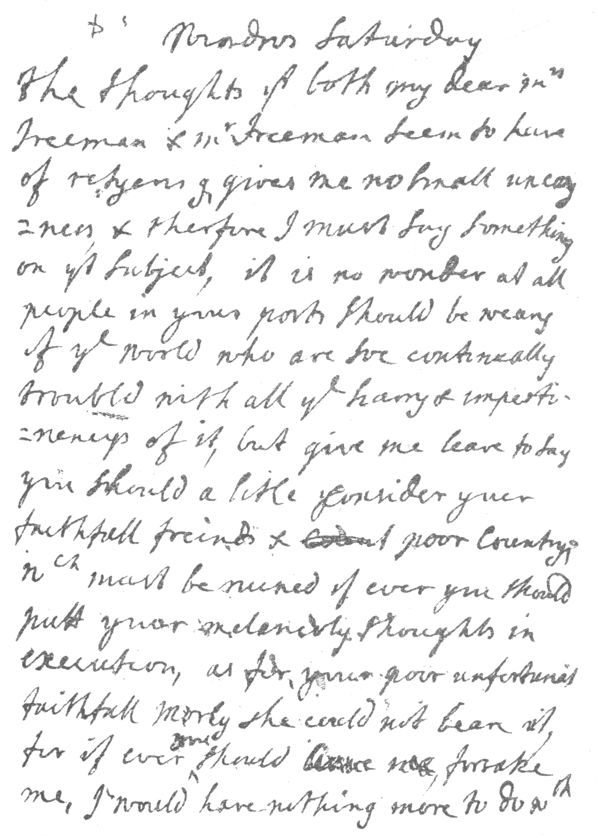 Windsor Saturday
The thoughts yt both my dear mrs
Freeman & mr Freeman seem to have
of retyering gives me no small uneasy
=ness & therfore I must say something
on yt subject, it is no wonder at all
people in your posts should be weary
of ye world who are soe continually
troubld with all ye hurry & imperti-
=nencys of it, but give me leave to say
you should a litle consider your
faithfull freinds & poor Country,
wch must be ruined if ever you should
putt your melancoly thoughts in
execution, as for your poor unfortunat
faithfull Morly she could not beare it,
for if ever you should forsake
me, I would have nothing more to do wth